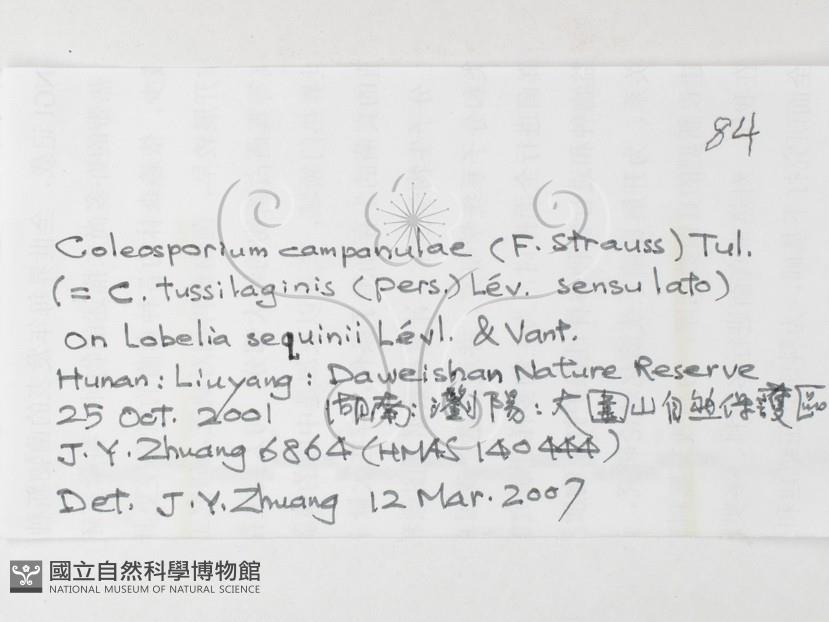 84
Coleosporium campanulae (F. Strauss) Tul.
(= C. tussilaginis (Pers.) Lév. sensu lato)
on Lobelia sequinii Lévl. & Vant.
Hunan: Liuyang: Daweishan Nature Reserve
25 Oct. 2001 湖南: 瀏陽: 大圍山自然保護區
J. Y. Zhuang 6864 (HMAS 140444)
Det. J. Y. Zhuang 12 Mar. 2007
國立自然科學博物館
NATIONAL MUSEUM OF NATURAL SCIENCE